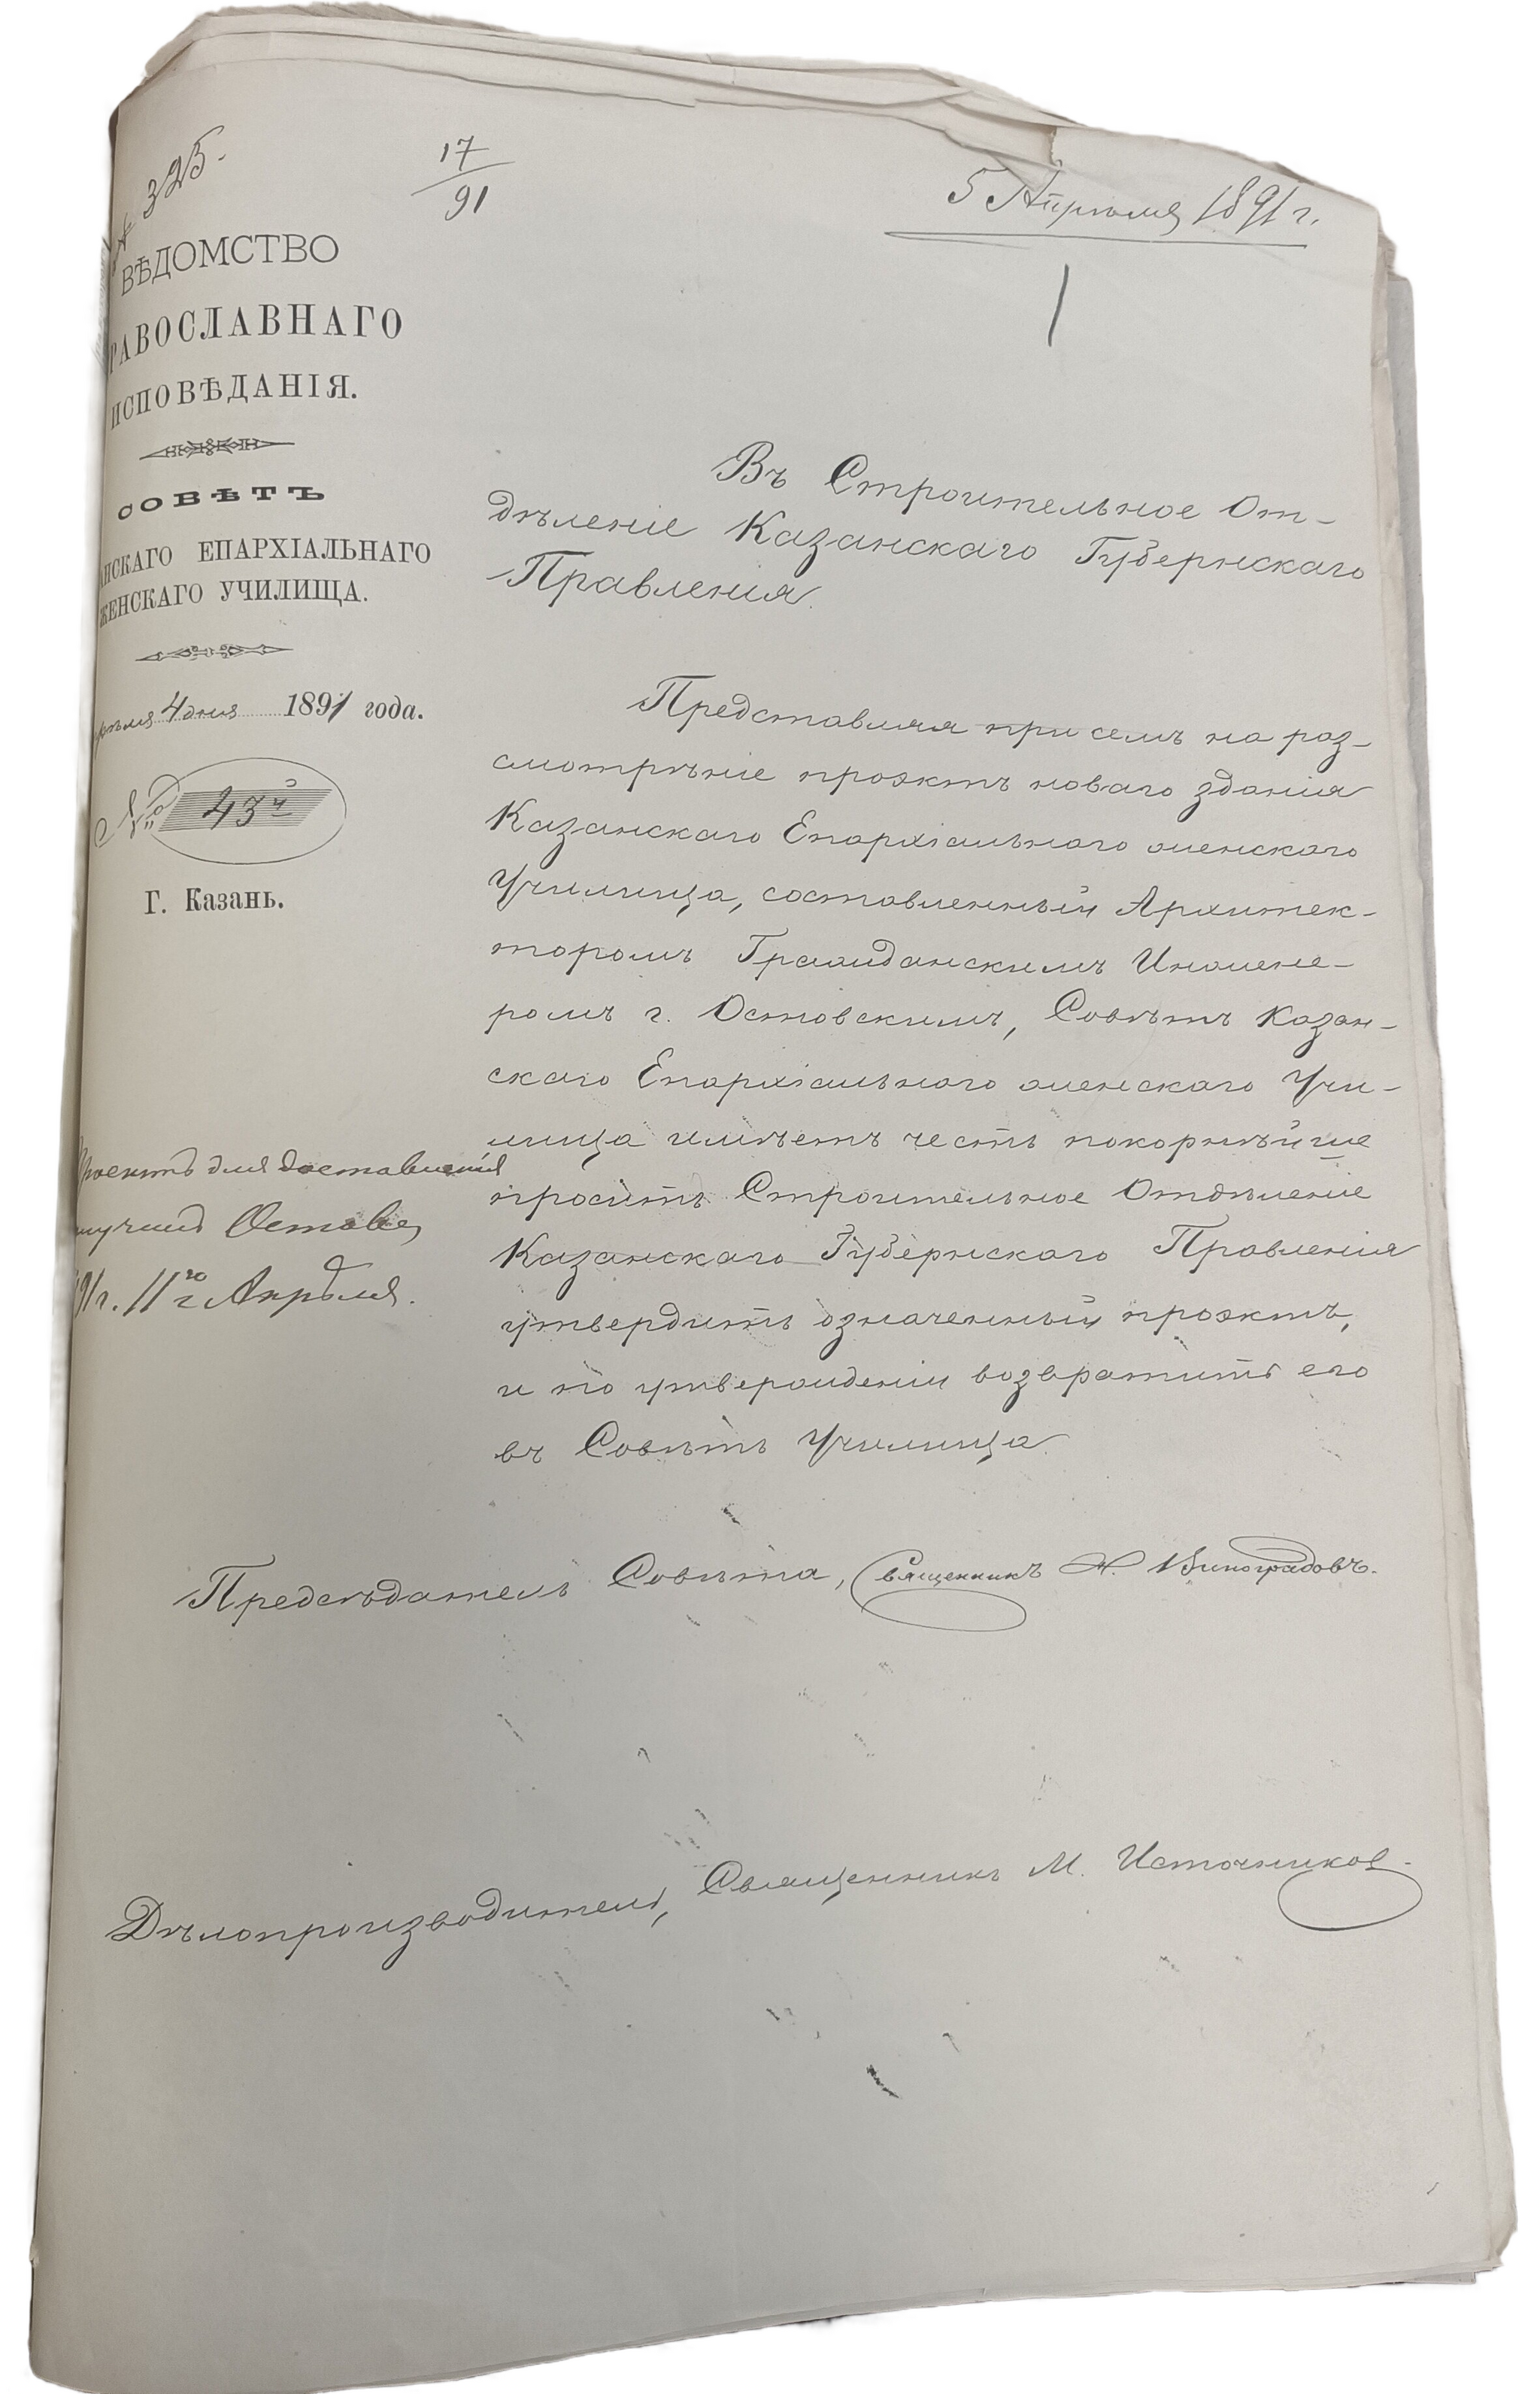 № 325.
17
91
5 Апрѣля 1891 г.
1
ВѢДОМСТВО
РАВОСЛАВНАГО
ИСПОВѢДАНІЯ.
СОВѢТЪ
АНСКАГО ЕПАРХІАЛЬНАГО
ЖЕНСКАГО УЧИЛИЩА.
рѣля 4 дня 1891 года.
№ 43
Г. Казань.
Въ Строительное От-
дѣленіе Казанскаго Губернскаго
Правленія.
Представляя при семъ на раз-
смотрѣніе проэктъ новаго зданія
Казанскаго Епархіальнаго женскаго
Училища, составленный Архитек-
торомъ Гражданскимъ Инжене-
ромъ г. Остовскимъ, Совѣтъ Казан-
скаго Епархіальнаго женскаго Учи-
лища имѣетъ честь покорнѣйше
просить Строительное Отдѣленіе
Казанскаго Губернскаго Правленія
утвердить означенный проэктъ,
и по утвержденіи возвратить его
въ Совѣтъ Училища.
Проектъ для доставленія
лучилъ
91 г. 11го Апрѣля.
Предсѣдатель Совѣта, Священникъ Н. Виноградовъ.
Дѣлопроизводитель, Священникъ М. Источников